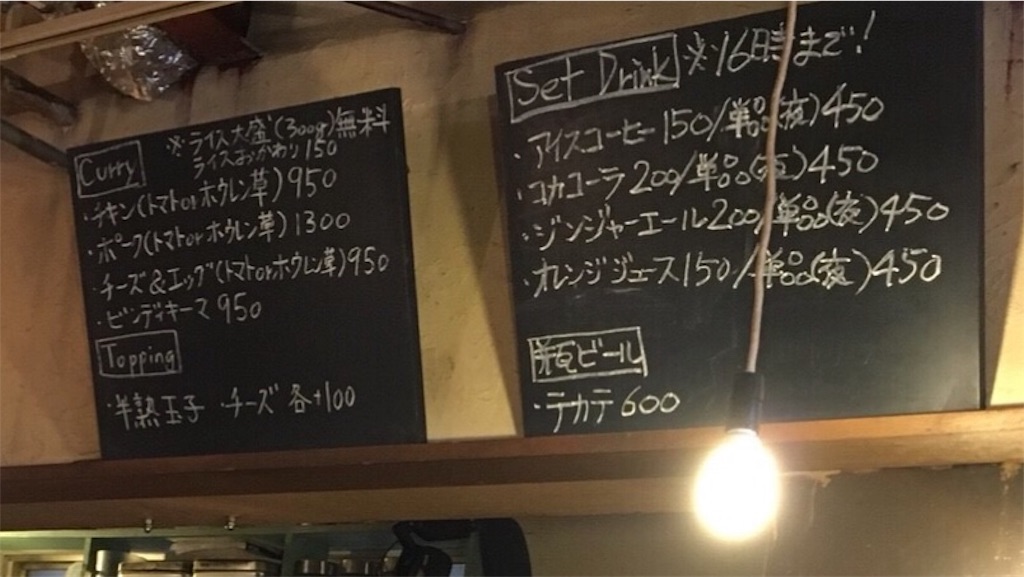 ※ライス大盛(300g)無料
ライスおかわり150
Curry
・チキン(トマトorホウレン草)950
・ポーク(トマトorホウレン草)1300
・チーズ&エッグ(トマトorホウレン草)950
・ビンディキーマ950
Topping
・半熟玉子 ・チーズ 各+100
Set Drink ※16時まで!
・アイスコーヒー150/単品(夜)450
・コカコーラ200/単品(夜)450
・ジンジャーエール200/単品(夜)450
・オレンジジュース150/単品(夜)450
瓶ビール
・テカテ600